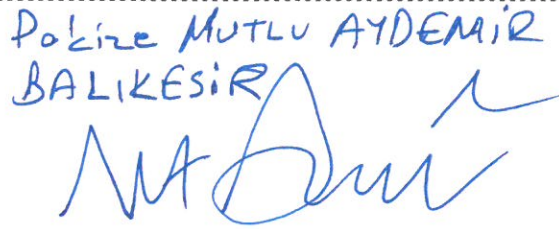 Pakize MUTLU AYDEMİR
BALIKESİR